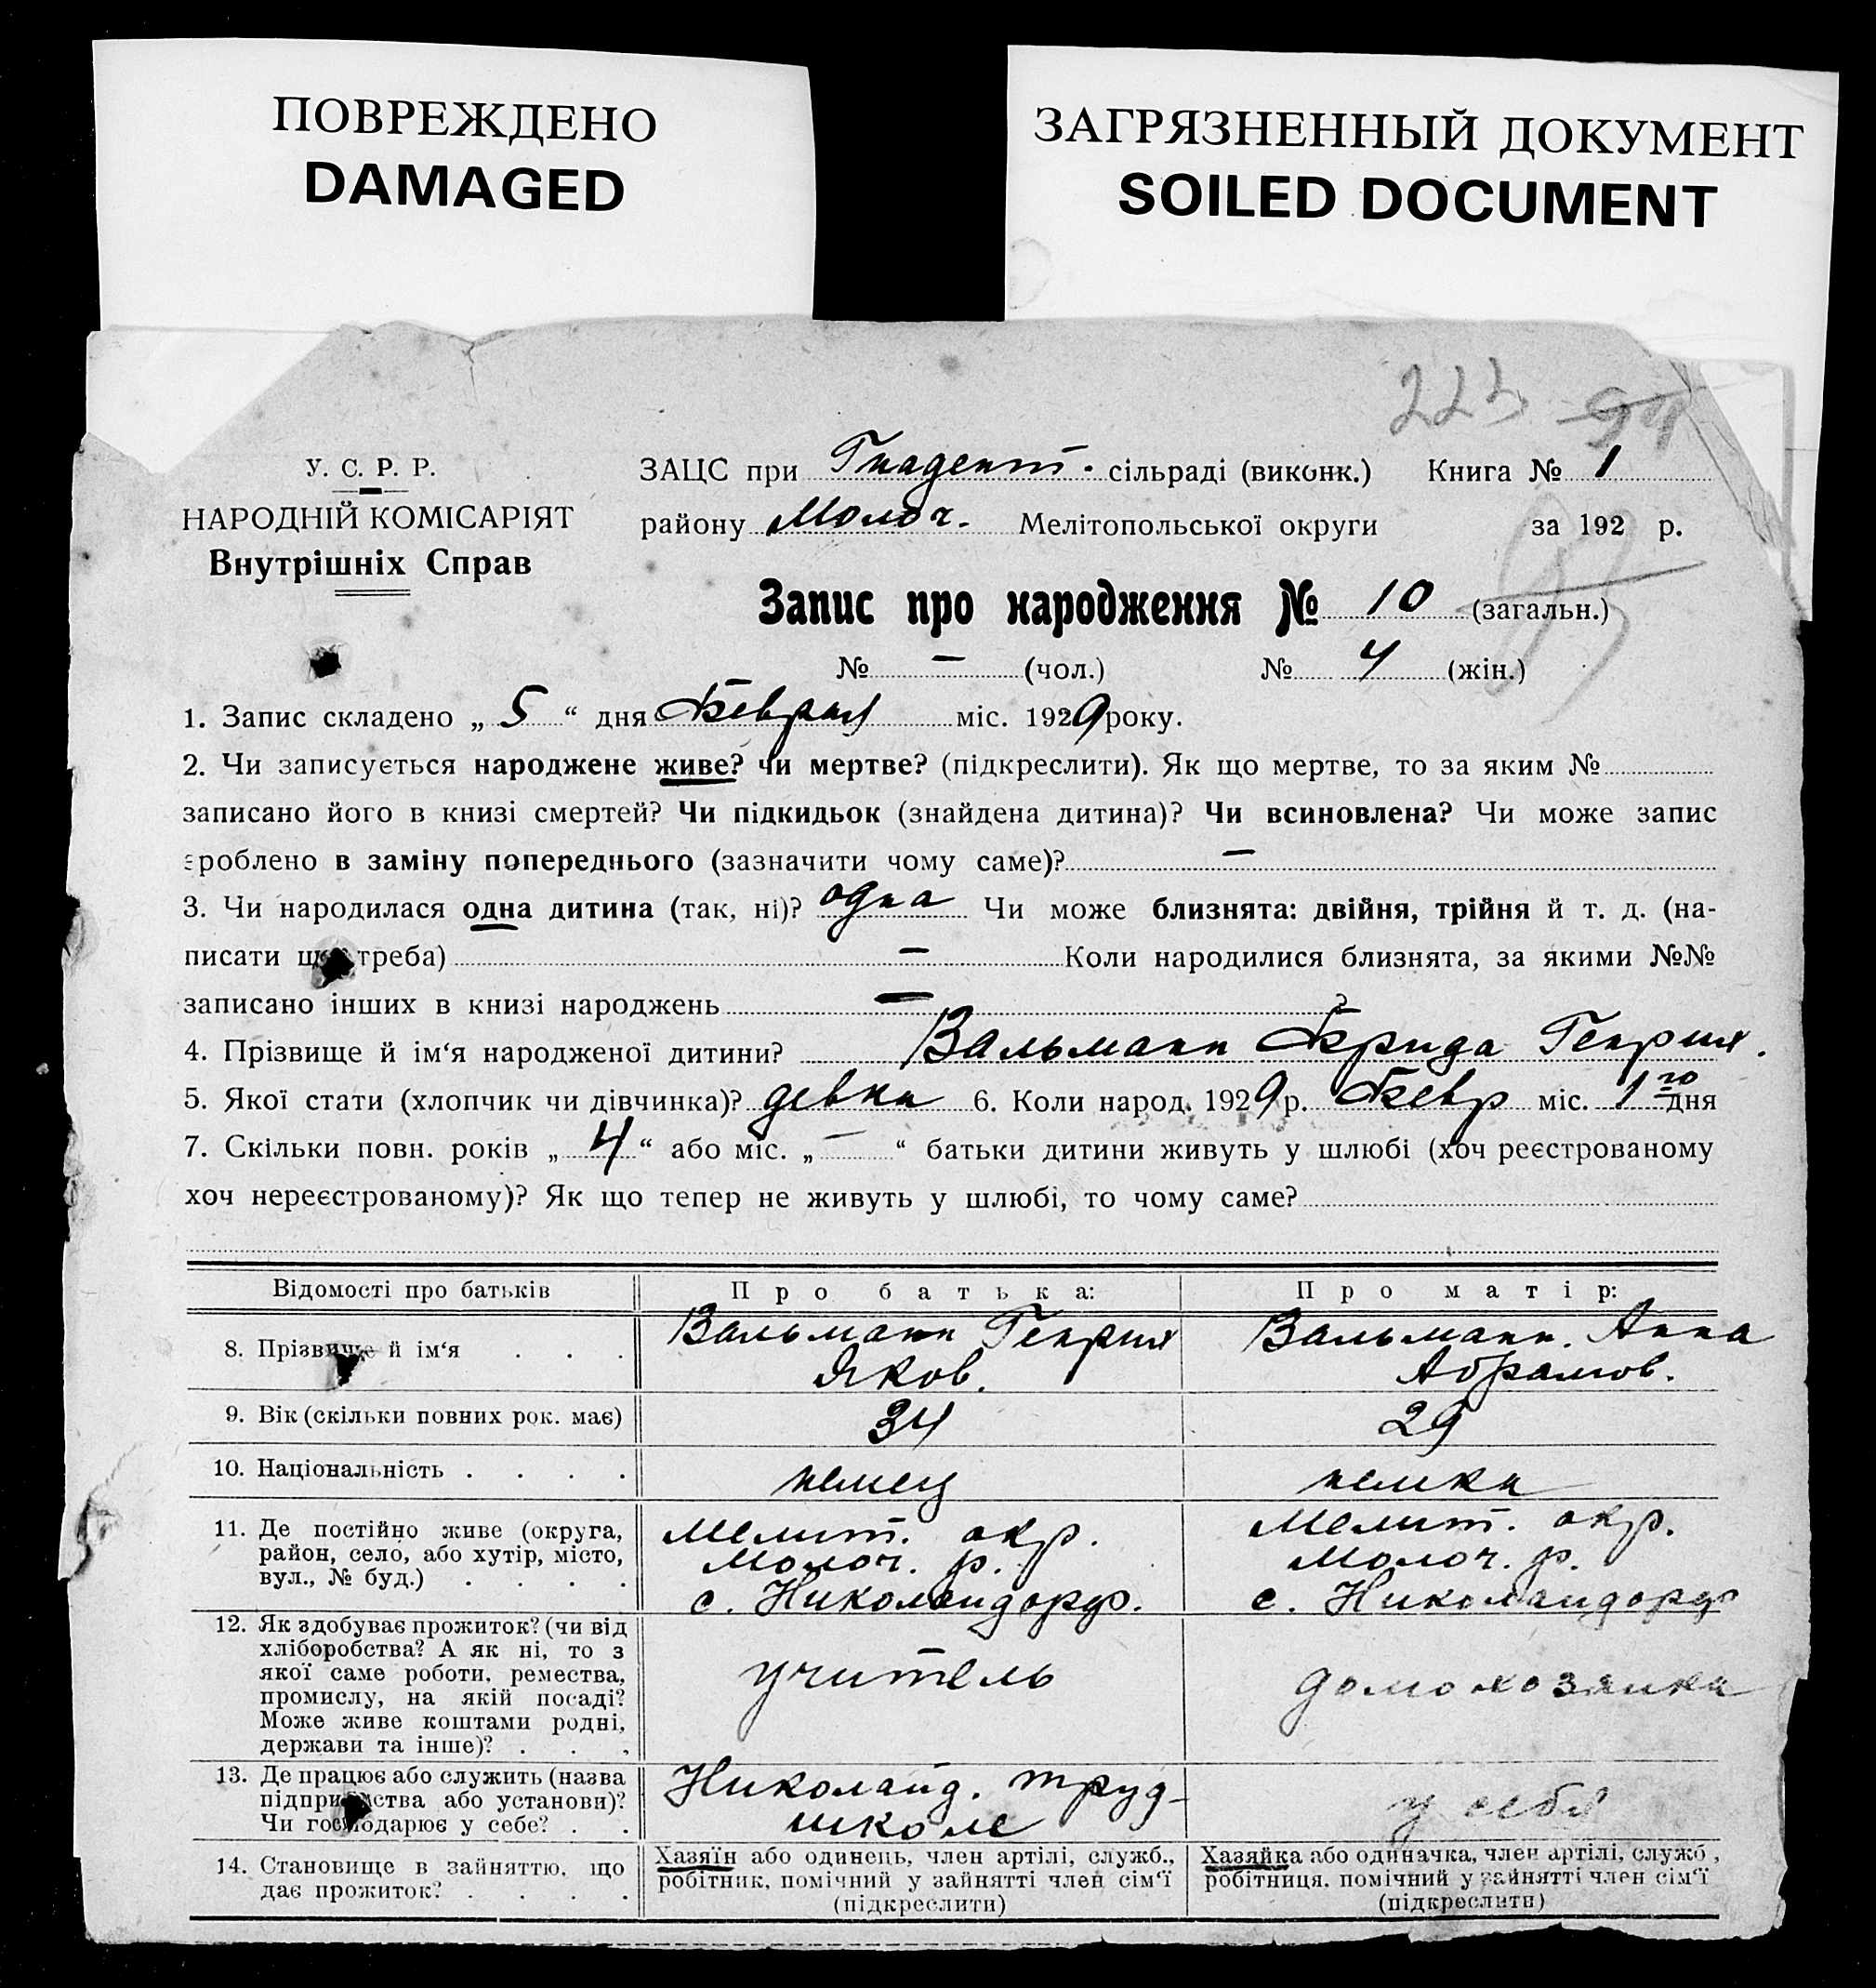 ПОВРЕЖДЕНО
DAMAGED
ЗАГРЯЗНЕННЫЙ ДОКУМЕНТ
SOILED DOCUMENT
223 94
У. С. Р. Р.
НАРОДНІЙ КОМІСАРІЯТ
Внутрішніх Справ
ЗАЦС при Гнадент. сільраді (виконк.) Книга № 1
району Молоч. Мелітопольської округи за 192 р.
Запис про народження № 10 (загальн.)
№ — (чол.) № 4 (жін.)
1. Запис складено „ 5 “ дня Февраля міс. 1929 року.
2. Чи записується народжене живе? чи мертве? (підкреслити). Як що мертве, то за яким №
записано його в книзі смертей? Чи підкидьок (знайдена дитина)? Чи всиновлена? Чи може запис
зроблено в заміну попереднього (зазначити чому саме)? —
3. Чи народилася одна дитина (так, ні)? одна Чи може близнята: двійня, трійня й т. д. (на-
писати що треба) — Коли народилися близнята, за якими №№
записано інших в книзі народжень — ?
4. Прізвище й ім‘я народженої дитини? Вальманн Фрида Генрих.
5. Якої стати (хлопчик чи дівчинка)? девка 6. Коли народ. 1929 р. Февр міс. 1го дня
7. Скільки повн. років „ 4 “ або міс. „ — “ батьки дитини живуть у шлюбі (хоч реєстрованому
хоч нереєстрованому)? Як що тепер не живуть у шлюбі, то чому саме?
Відомості про батьків
Про батька:
Про матір:
8. Прізвище й ім‘я . . .
Вальманн Генрих
Яков.
Вальманн. Анна
Абрамов.
9. Вік (скільки повних рок. має)
34
29
10. Національність . . . .
немец
немка
11. Де постійно живе (округа,
район, село, або хутір, місто,
вул., № буд.) . . . .
Мелит. окр.
Молоч. р.
с. Николайдорф.
Мелит. окр.
Молоч. р.
с. Николайдорф
12. Як здобуває прожиток? (чи від
хліборобства? А як ні, то з
якої саме роботи, ремества,
промислу, на якій посаді?
Може живе коштами родні,
держави та інше)? . . .
учитель
домохозяйка
13. Де працює або служить (назва
підприємства або установи)?
Чи господарює у себе? . .
Николайд. труд-
школе
у себя
14. Становище в зайняттю, що
дає прожиток? . . . .
Хазяїн або одинець, член артілі, служб.,
робітник, помічний у зайнятті член сім‘ї
(підкреслити)
Хазяйка або одиначка, член артілі, служб.,
робітниця, помічний у зайнятті член сім‘ї
(підкреслити)